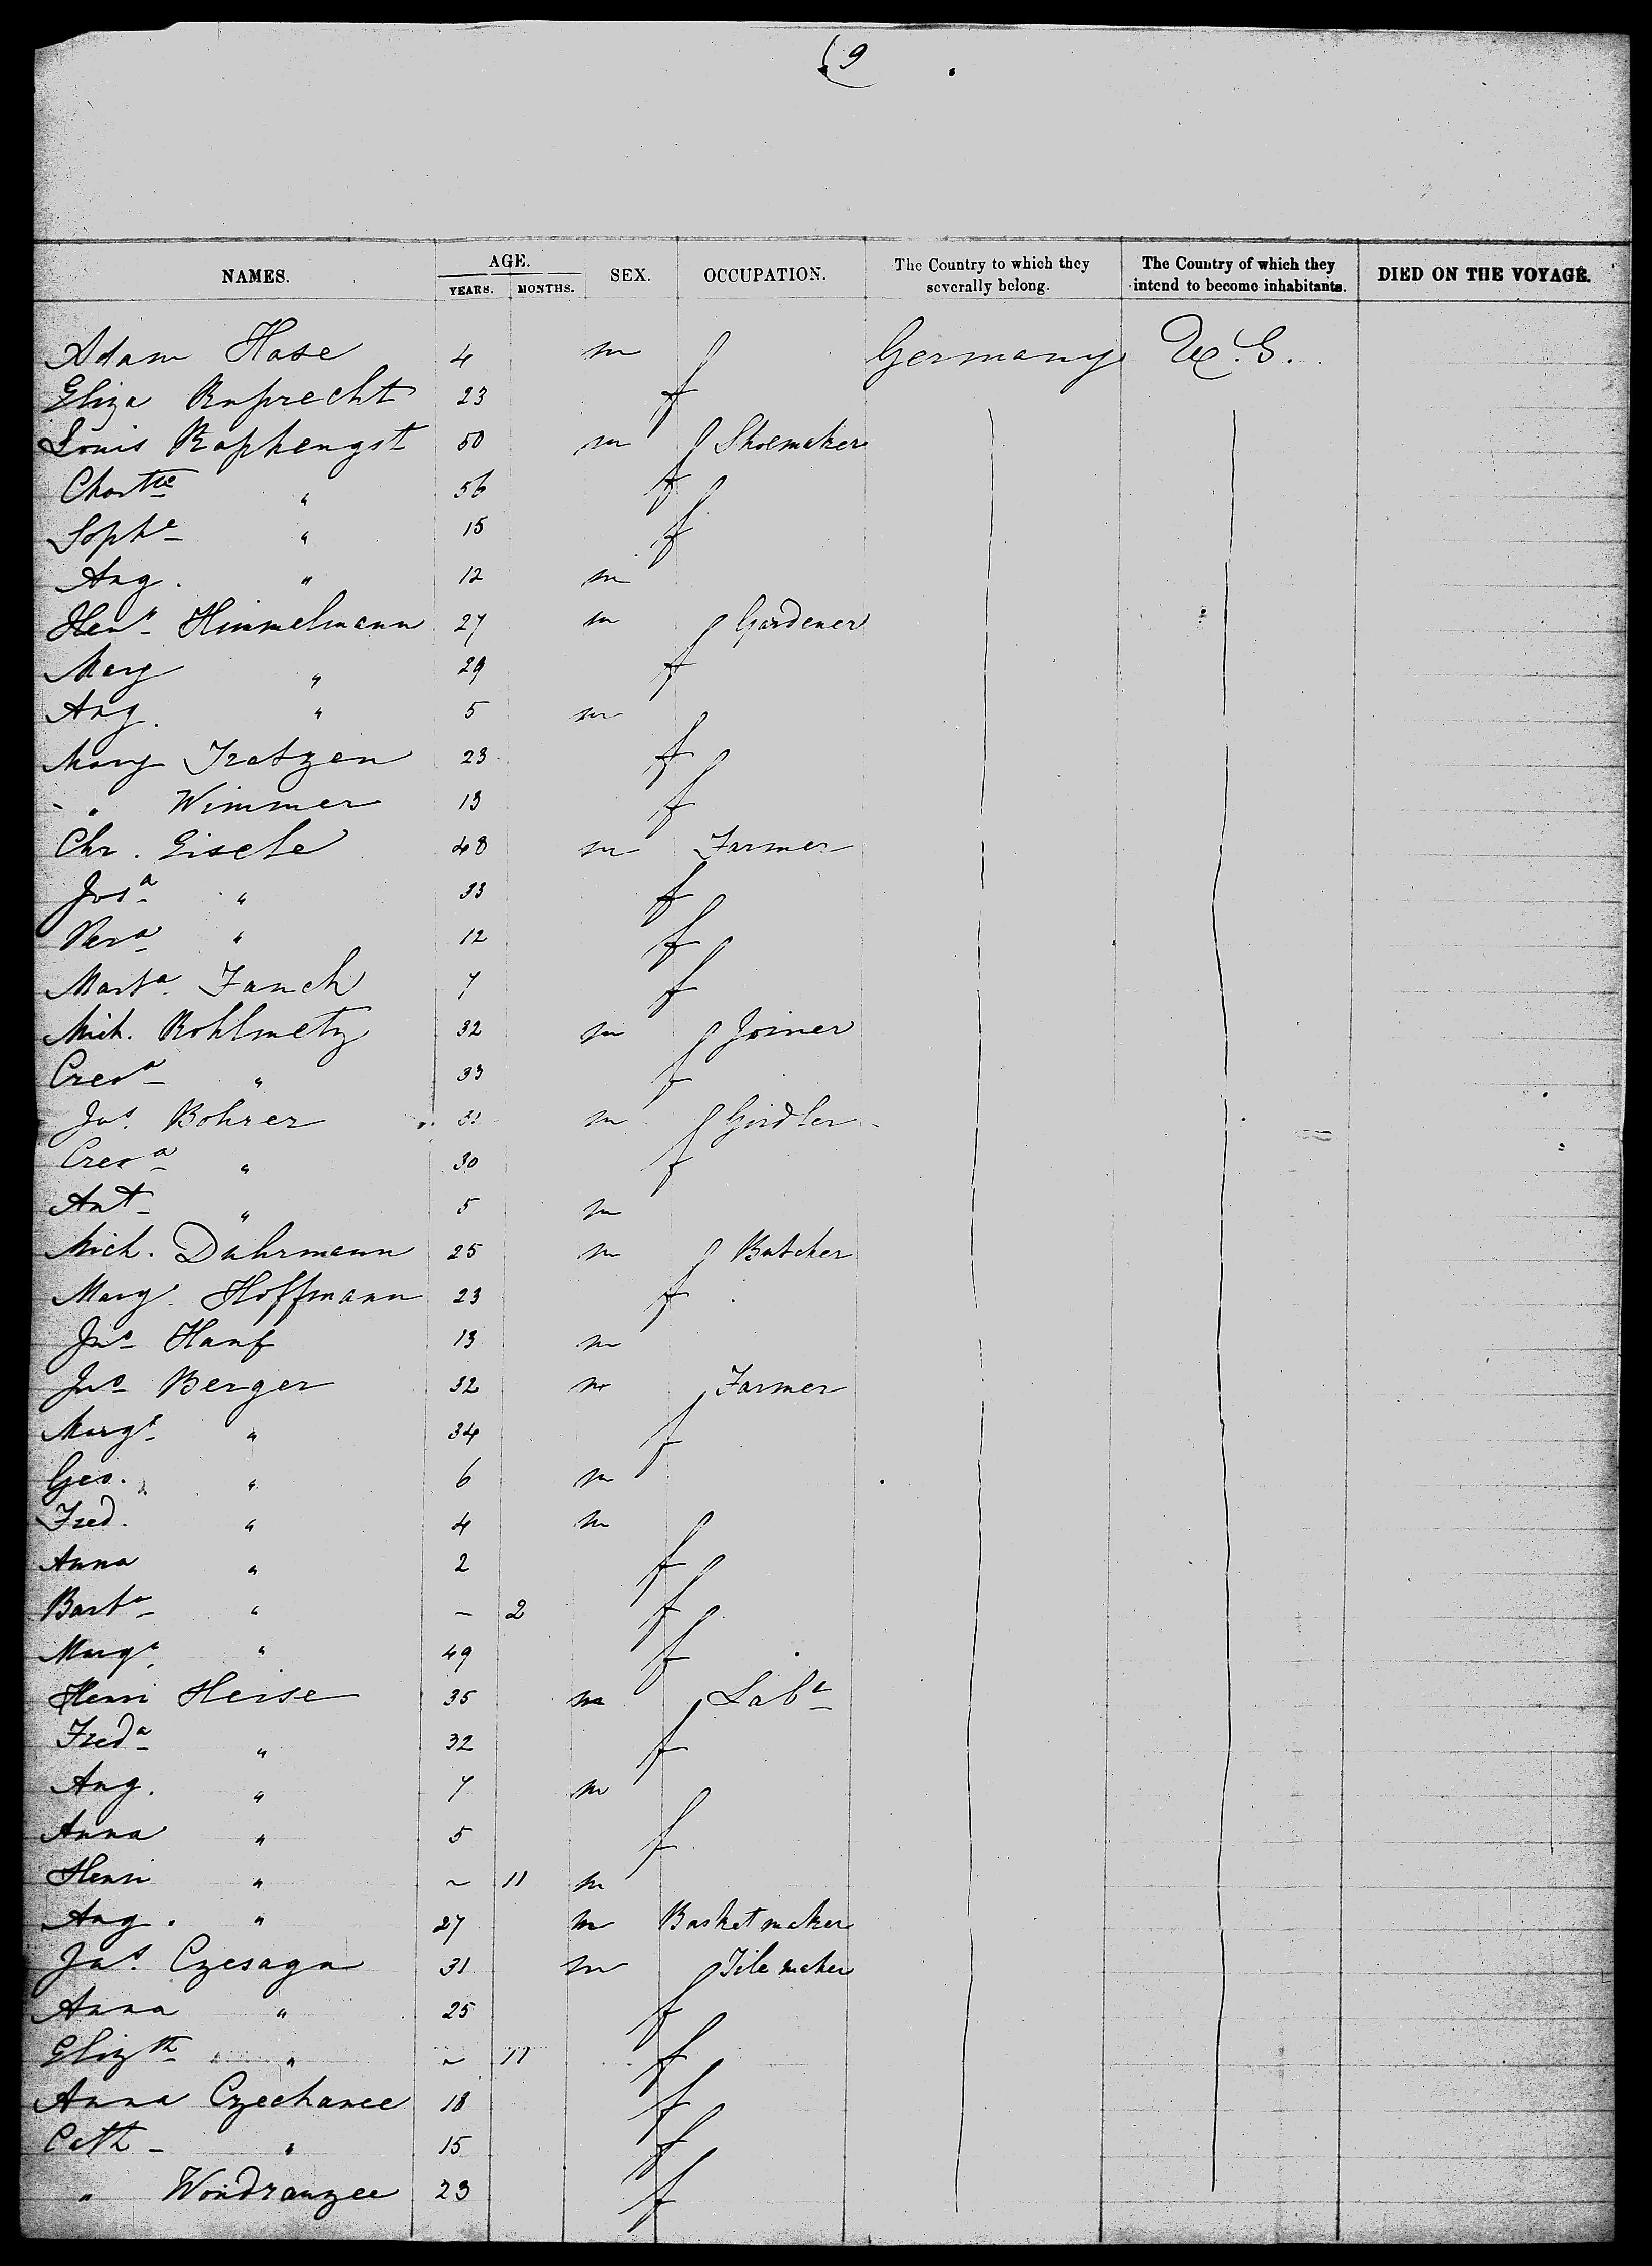 9
NAMES. AGE. YEARS. MONTHS. SEX. OCCUPATION. The Country to which they severally belong. The Country of which they intend to become inhabitants. DIED ON THE VOYAGE.
Adam Hase 4 m Germany U.S.
Eliza Ruprecht 23 f
Louis Raphengst 50 m Shoemaker
Chartte " 56 f
Sophe " 15 f
Aug. " 12 m
Heny Himmelmann 27 m Gardener
Mary " 29 f
Aug. " 5 m
Mary Tratzen 23 f
" Wimmer 13 f
Chr. Eisele 48 m Farmer
Josa " 33 f
Vera " 12 f
Marta Fauch 7 f
Mich. Rohlmetz 32 m Joiner
Cresa " 33 f
Jos. Bohrer m Girdler
Cresa " 30 f
Ant " 5 m
Mich. Duhrmann 25 m Butcher
Marg. Hoffmann 23 f
Jno Hanf 13 m
Jno Berger 32 m Farmer
Margt " 34 f
Geo. " 6 m
Fred. " 4 m
Anna " 2 f
Barba " - 2 f
Marga " 49 f
Henri Heise 35 m Labr
Freda " 32 f
Aug. " 7 m
Anna " 5 f
Henri " ~ 11 m
Aug. " 27 m Basket maker
Jas. Czesaga 31 m Tile maker
Anna " 25 f
Elizth " ~ 11 f
Anna Czechanee 18 f
Cath " 15 f
" Wondranzee 23 f